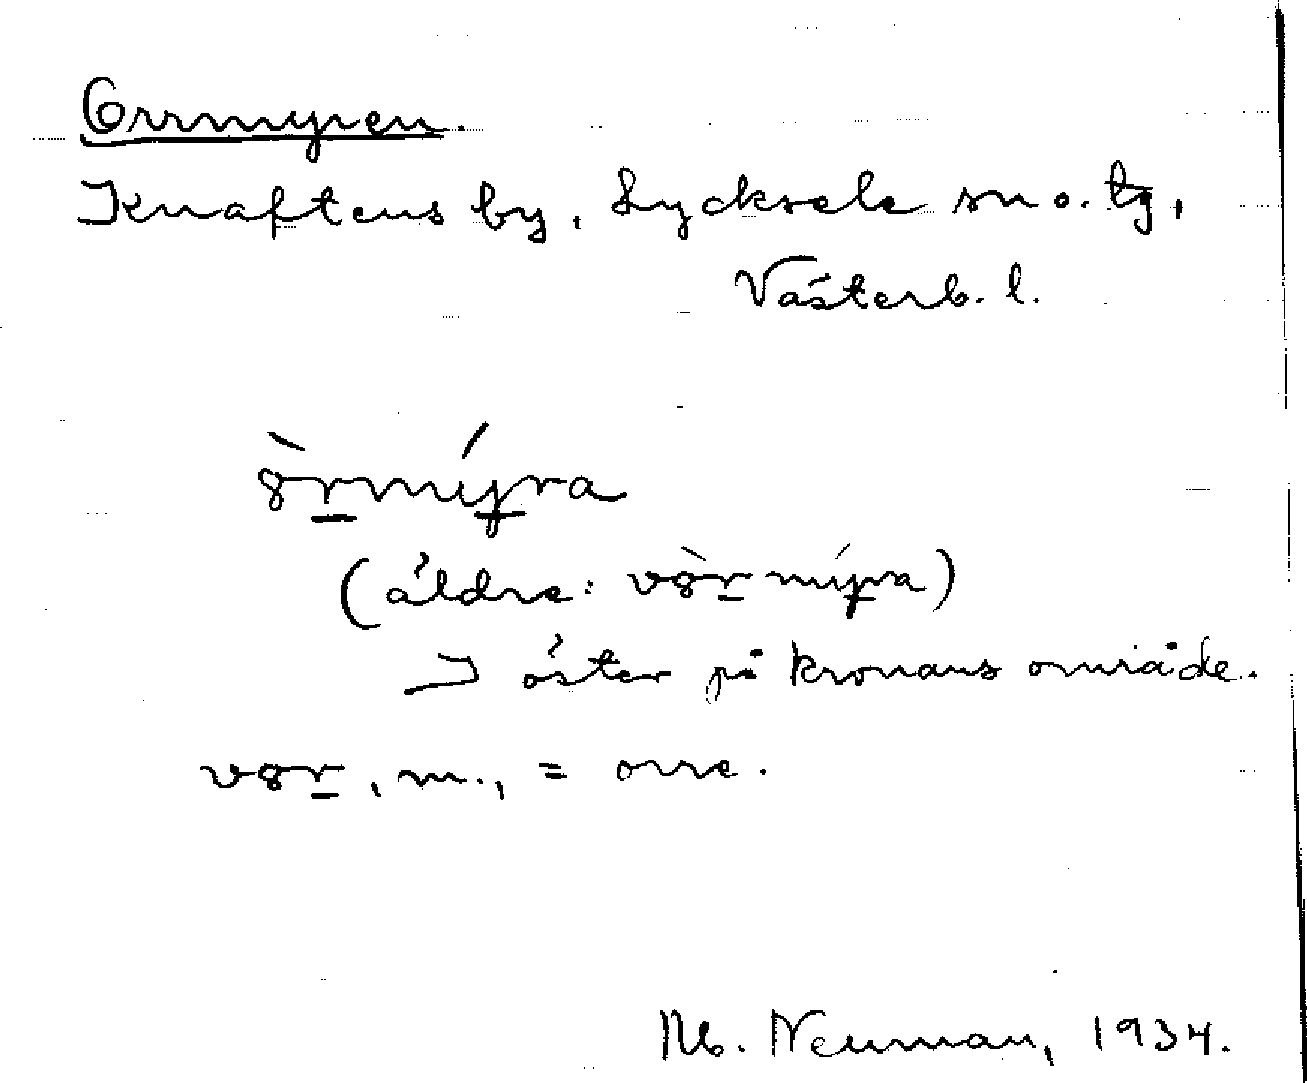 Orrmyren.
Knaftens by, Lycksele sn o. tg,
Västerb. l.
òrmýra
(äldre: vòrmýra)
I öster på kronans område.
vor, m., = orre.
M. Neuman, 1934.